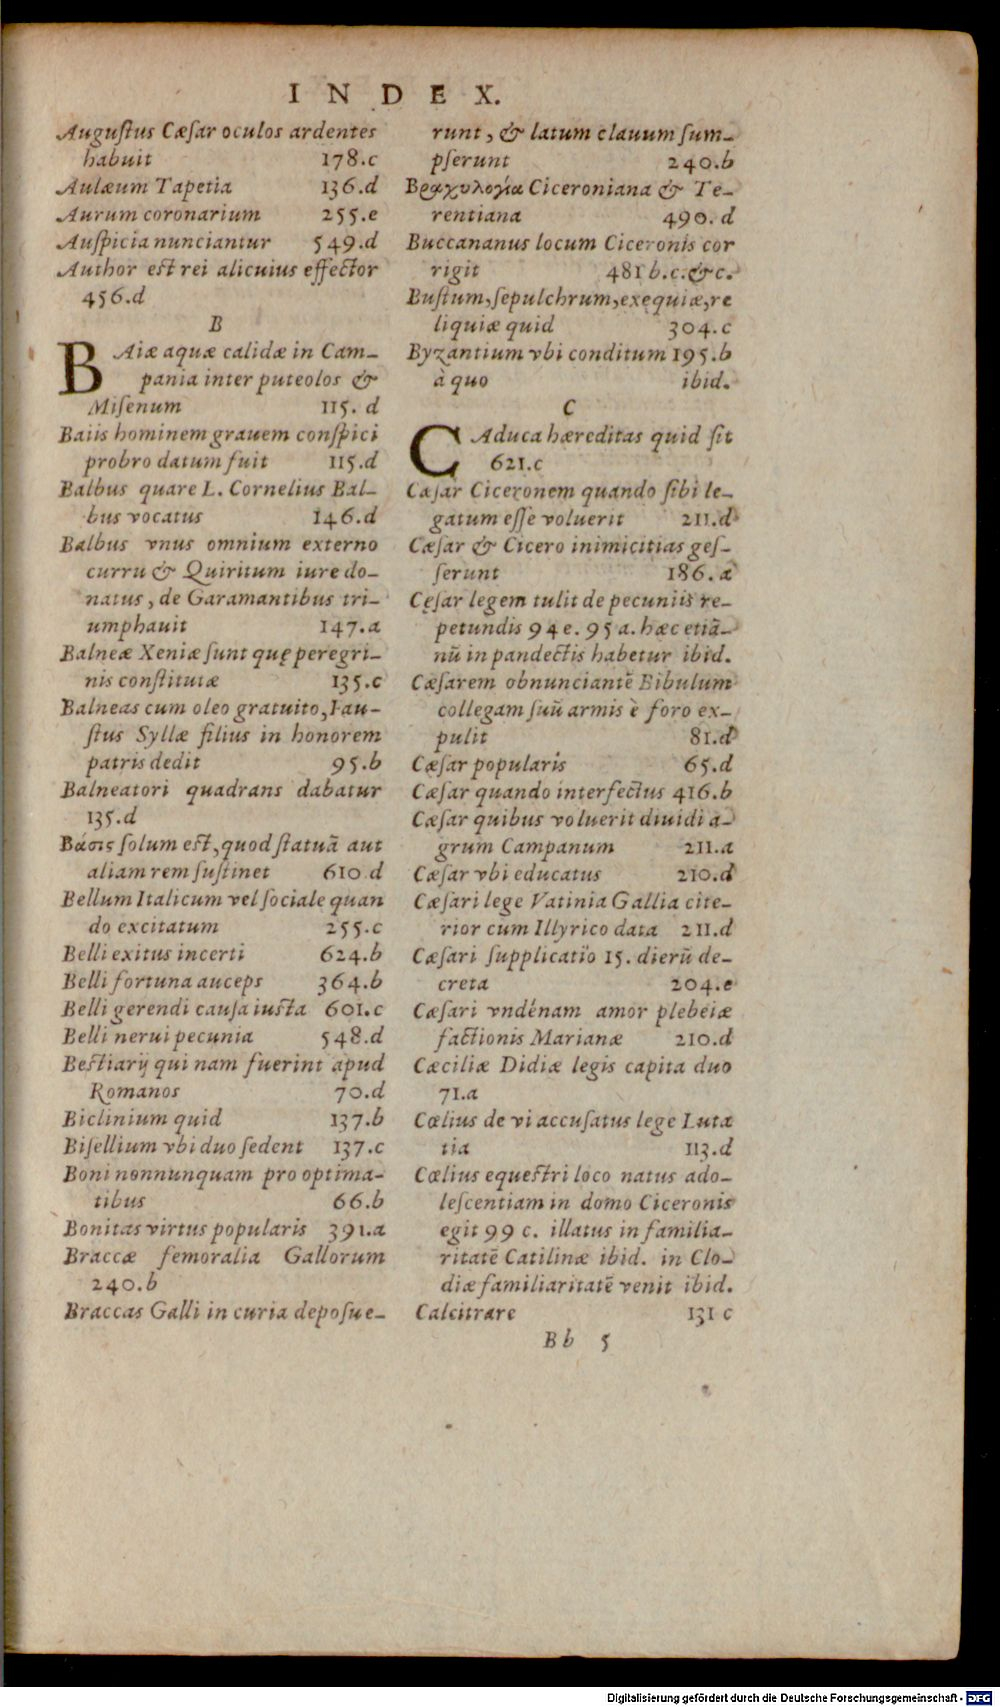 INDEX.
Auguſtus Cæſar oculos ardentes
habuit 178.c
Aulæum Tapetia 136.d
Aurum coronarium 255.e
Auſpicia nunciantur 549.d
Author est rei alicuius effector
456.d
B
BAiæ aquæ calidæ in Cam-
pania inter puteolos &
Miſenum 115. d
Baiis hominem grauem conſpici
probro datum fuit 115.d
Balbus quare L. Cornelius Bal-
bus vocatus 146.d
Balbus vnus omnium externo
curru & Quiritum iure do-
natus, de Garamantibus tri-
umphauit 147.a
Balneæ Xeniæ ſunt quę peregri-
nis conſtitutæ 135.c
Balneas cum oleo gratuito, Fau-
ſtus Syllæ filius in honorem
patris dedit 95.b
Balneatori quadrans dabatur
135.d
Βάσις ſolum est, quod ſtatuã aut
aliam rem ſuſtinet 610 d
Bellum Italicum vel ſociale quan
do excitatum 255.c
Belli exitus incerti 624.b
Belli fortuna auceps 364.b
Belli gerendi cauſa iusta 601.c
Belli nerui pecunia 548.d
Bestiarij qui nam fuerint apud
Romanos 70.d
Biclinium quid 137.b
Biſellium vbi duo ſedent 137.c
Boni nonnunquam pro optima-
tibus 66.b
Bonitas virtus popularis 391.a
Braccæ femoralia Gallorum
240.b
Braccas Galli in curia depoſue-
runt, & latum clauum ſum-
pſerunt 240.b
Βραχυλογία Ciceroniana & Te-
rentiana 490. d
Buccananus locum Ciceronis cor
rigit 481 b.c.&c.
Buſtum, ſepulchrum, exęquiæ, re
liquiæ quid 304.c
Byzantium vbi conditum 195.b
à quo ibid.
C
CAduca hæreditas quid ſit
621.c
Cæſar Ciceronem quando ſibi le-
gatum eſſe voluerit 211.d
Cæſar & Cicero inimicitias geſ-
ſerunt 186.a
Cęſar legem tulit de pecuniis re-
petundis 94 e. 95 a. hæc etiã-
nũ in pandectis habetur ibid.
Cæſarem obnunciantẽ Bibulum
collegam ſuũ armis è foro ex-
pulit 81.d
Cæſar popularis 65.d
Cæſar quando interfectus 416.b
Cæſar quibus voluerit diuidi a-
grum Campanum 211.a
Cæſar vbi educatus 210.d
Cæſari lege Vatinia Gallia cite-
rior cum Illyrico data 211.d
Cæſari ſupplicatio 15. dierũ de-
creta 204.e
Cæſari vndénam amor plebeiæ
factionis Marianæ 210.d
Cæciliæ Didiæ legis capita duo
71.a
Cœlius de vi accuſatus lege Luta
tia 113.d
Cœlius equestri loco natus ado-
leſcentiam in domo Ciceronis
egit 99 c. illatus in familia-
ritatẽ Catilinæ ibid. in Clo-
diæ familiaritatẽ venit ibid.
Calcitrare 131 c
Bb 5
Digitalisierung gefördert durch die Deutsche Forschungsgemeinschaft - DFG